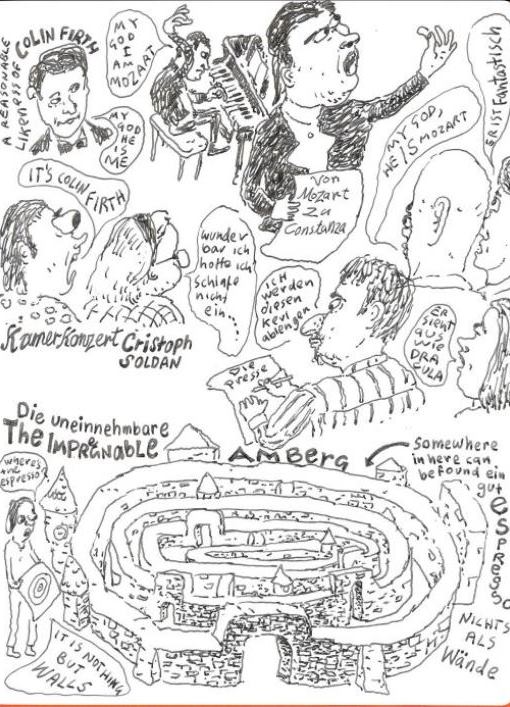 A REASONABLE
LIKENESS OF
COLIN FIRTH
MY
GOD
I AM
MOZART
MY
GOD
HE IS
ME
MY GOD,
HE IS MOZART
ER IST FANTASTISCH
IT'S COLIN
FIRTH
Von
Mozart
Zu
Constanza
wunder
bar ich
hoffe ich
Schlafe
nicht
ein...
ICH
WERDEN
DIESEN
KERL
ABLENGEN
ER
SIEHT
AUS
WIE
DRA
CULA
DIE
PRESSE
KamerKonzert Cristoph
SOLDAN
Die uneinnehmbare
The IMPREGNABLE
AMBERG
Somewhere
in here can
be found ein
gut
espresso
where's
the
espresso
IT IS NOTHING
BUT
WALLS
NICHTS
ALS
Wände